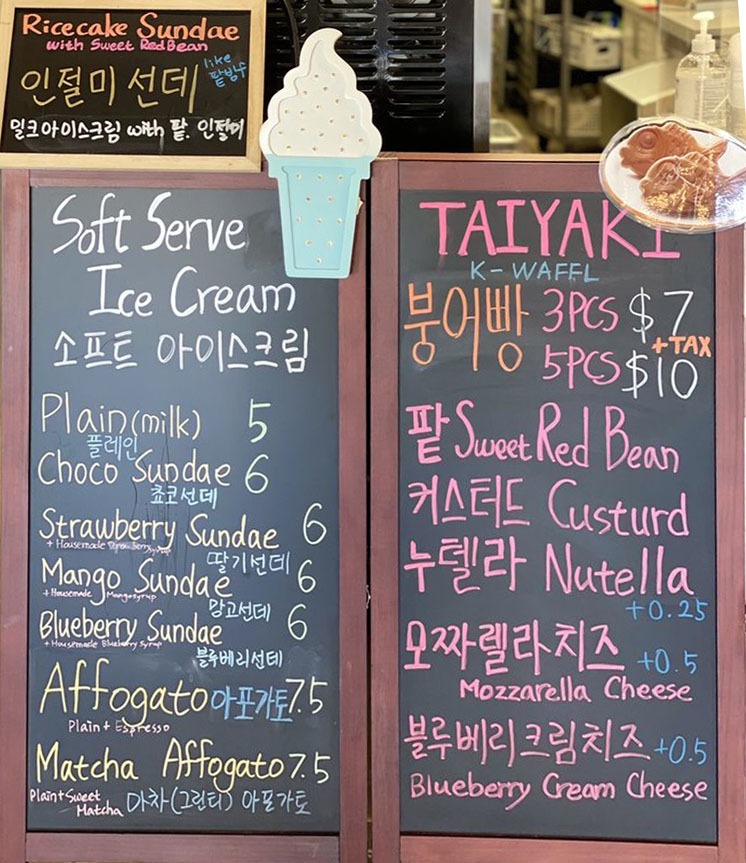 Ricecake Sundae
with Sweet RedBean
인절미 선데 like 팥빙수
밀크아이스크림 with 팥. 인절미
Soft Serve
Ice Cream
소프트 아이스크림
Plain (milk) 5
플레인
Choco Sundae 6
쵸코선데
Strawberry Sundae 6
+ Housemade Strawberry Syrup
딸기선데
Mango Sundae 6
+ Housemade Mango Syrup
망고선데
Blueberry Sundae 6
+ Housemade Blueberry Syrup
블루베리선데
Affogato 아포가토 7.5
Plain + Espresso
Matcha Affogato 7.5
Plain + Sweet Matcha
마차(그린티) 아포가토
TAIYAKI
K-WAFFL
붕어빵 3PCS $7
+TAX
5PCS $10
팥 Sweet Red Bean
커스터드 Custurd
누텔라 Nutella
+0.25
모짜렐라치즈 +0.5
Mozzarella Cheese
블루베리크림치즈 +0.5
Blueberry Cream Cheese